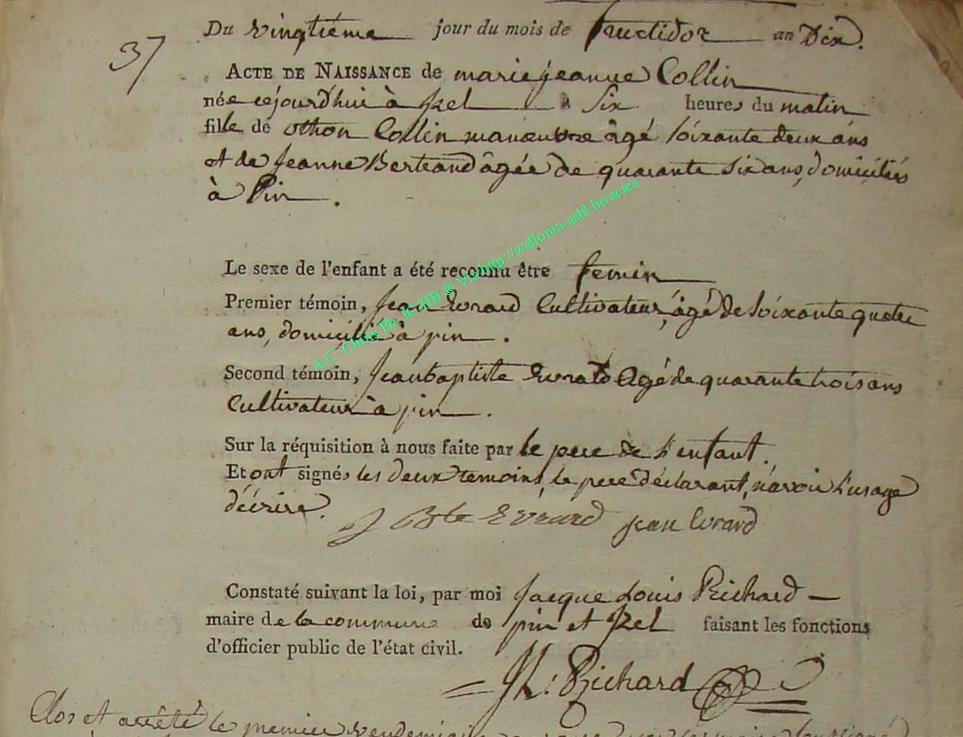 37
Du vingtième jour du mois de fructidor an Dix.
ACTE DE NAISSANCE de marie jeanne Collin
née cejourd'hui à Izel à Six heures du matin
fille de othon Collin manœuvre âgé soixante deux ans
et de Jeanne Bertrand âgée de quarante six ans, domiciliés
à Pin.
Le sexe de l'enfant a été reconnu être femin
Premier témoin, Jean Evrard Cultivateur, âgé de soixante quatre
ans, domicilié à pin.
Second témoin, Jean baptiste Evrard Agé de quarante trois ans
Cultivateur à pin.
Sur la réquisition à nous faite par le pere de l'enfant.
Et ont signés les deux temoins, le pere déclarant, n'avoir l'usage
d'écrire.
J Bte Evrard jean Evrard
Constaté suivant la loi, par moi Jacque Louis Richard
maire de la commune de pin et Izel faisant les fonctions
d'officier public de l'état civil.
JL: Richard
Clos et arrêté le premier vendemiaire
http://wallonia-asbl.be/actes